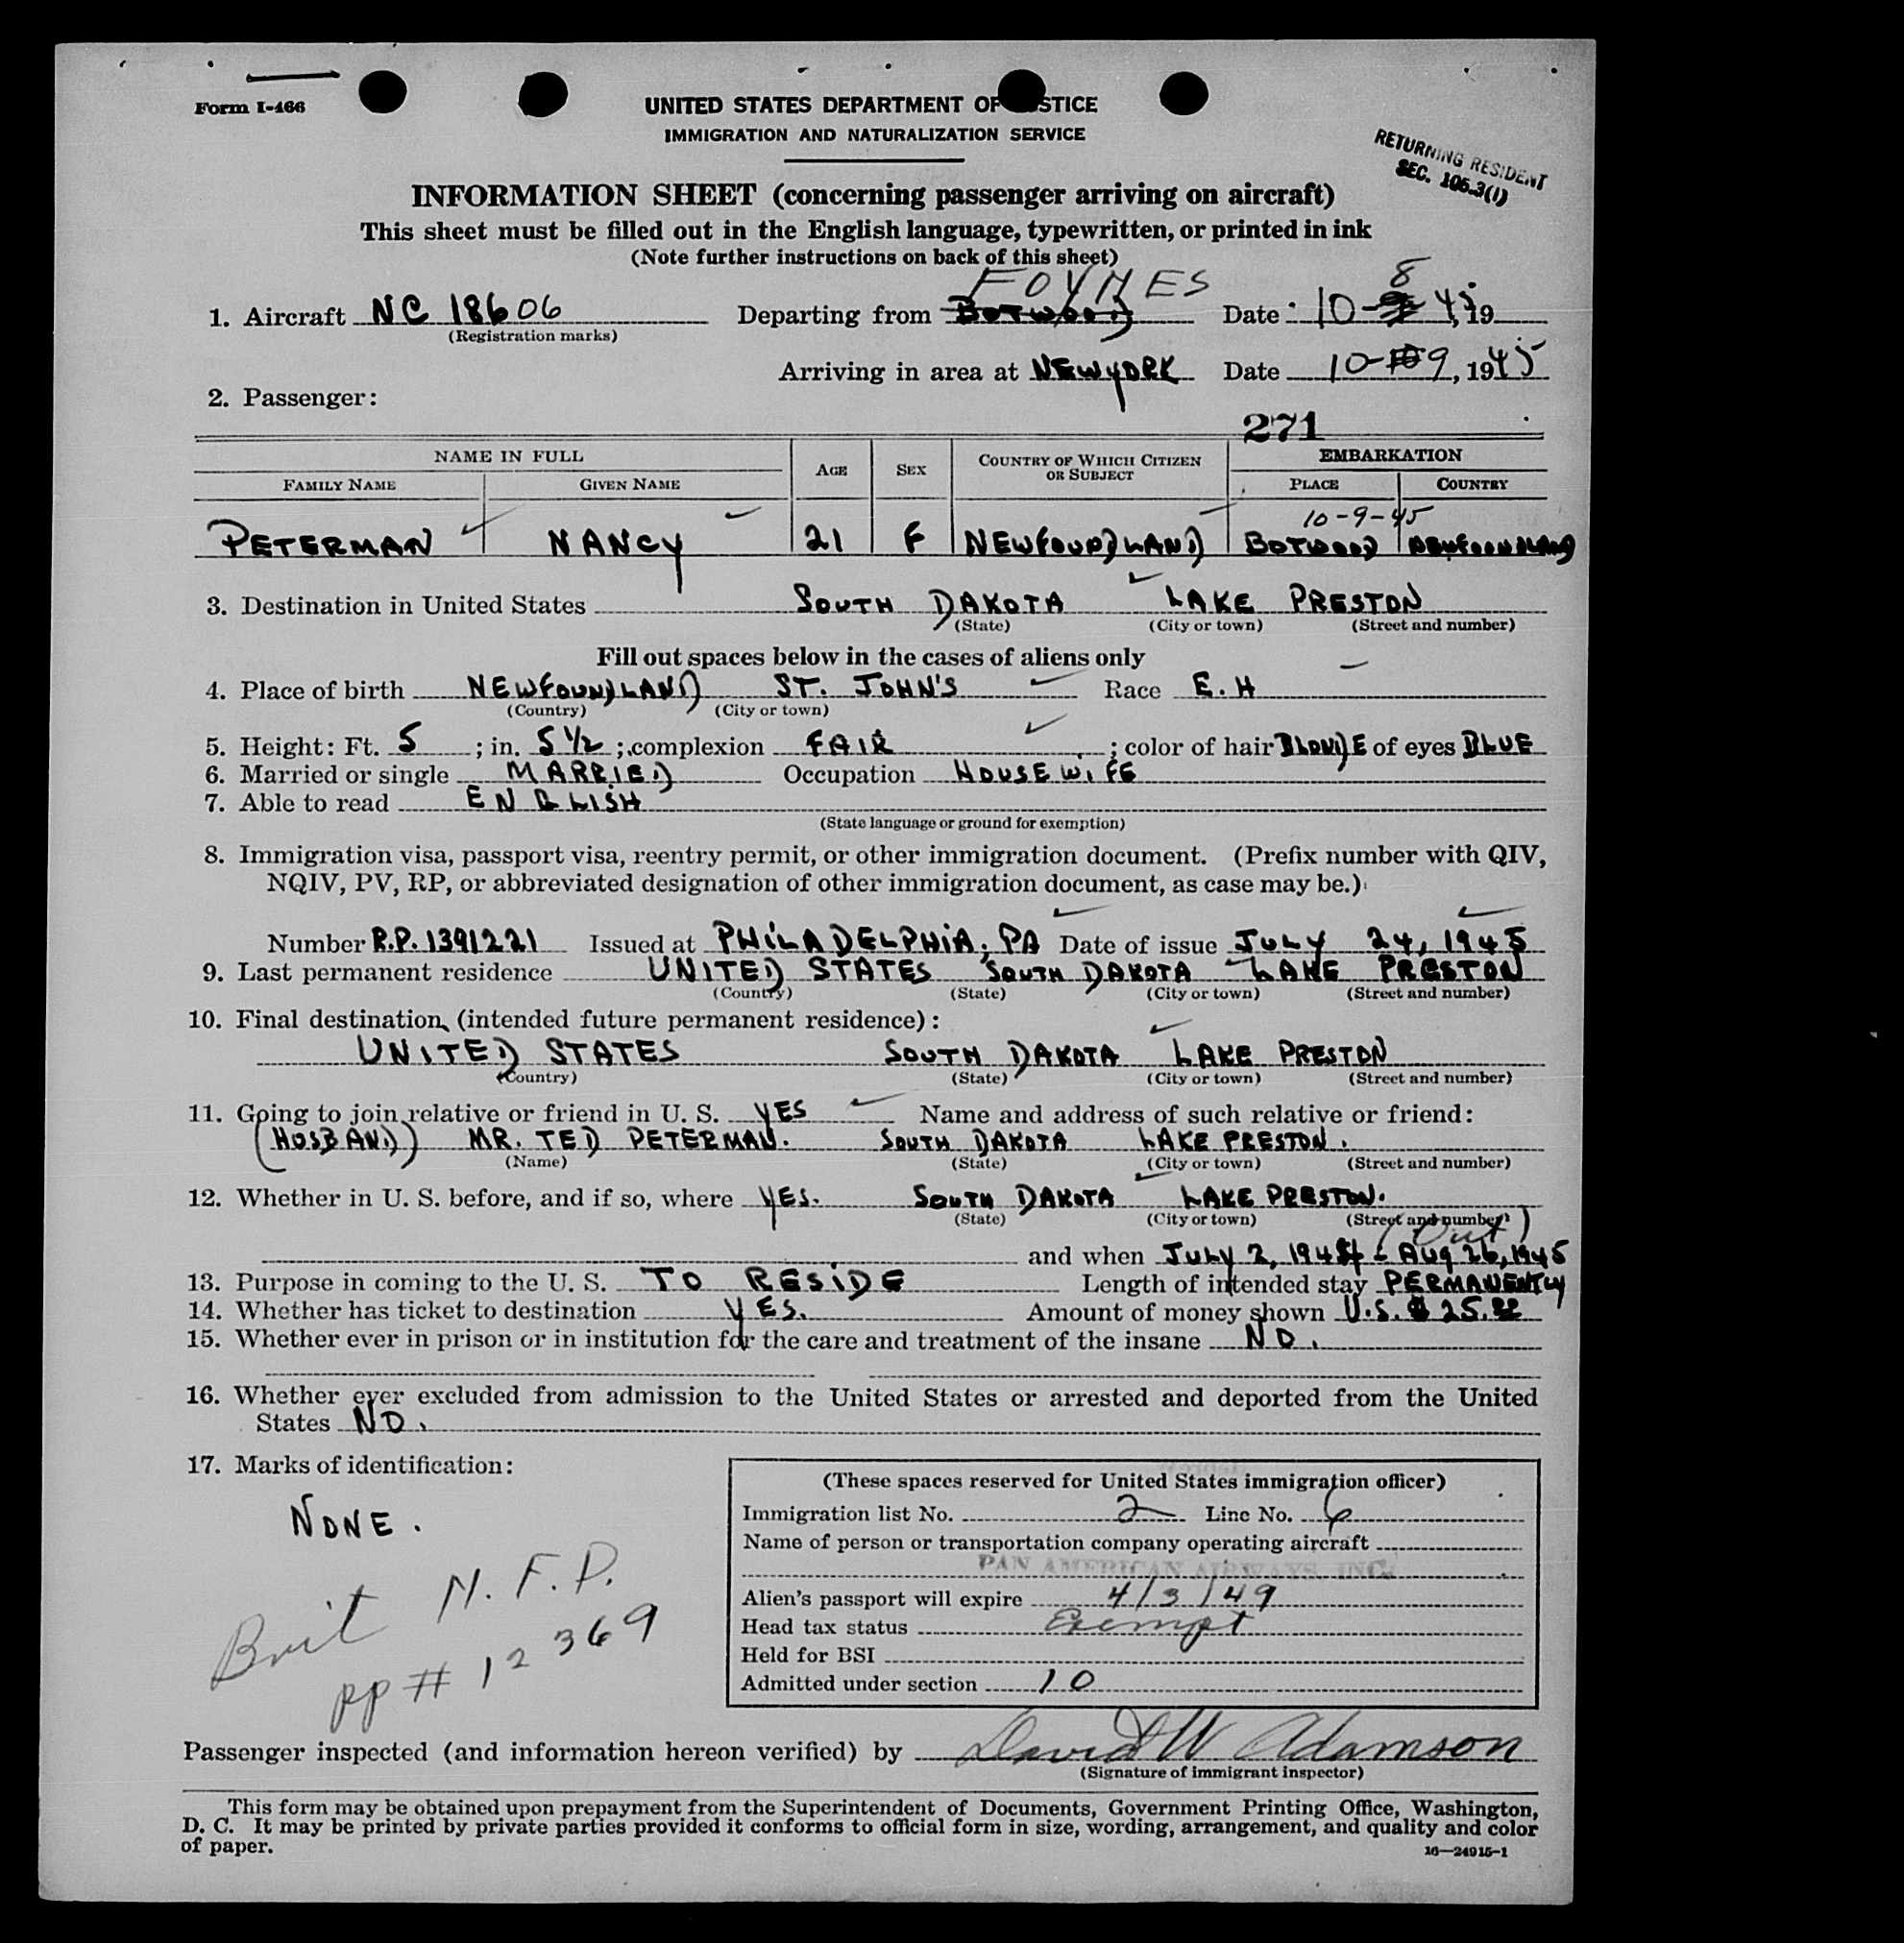 Form I-466
UNITED STATES DEPARTMENT OF JUSTICE
IMMIGRATION AND NATURALIZATION SERVICE
RETURNING RESIDENT
SEC. 106.3(1)
INFORMATION SHEET (concerning passenger arriving on aircraft)
This sheet must be filled out in the English language, typewritten, or printed in ink
(Note further instructions on back of this sheet)
FOYNES 8
1. Aircraft NC 18606 Departing from BOTWOOD Date 10- 45, 19
(Registration marks)
Arriving in area at NEW YORK Date 10-9, 1945
2. Passenger:
271
NAME IN FULL AGE SEX COUNTRY OF WHICH CITIZEN OR SUBJECT EMBARKATION
FAMILY NAME GIVEN NAME PLACE COUNTRY
10-9-45
PETERMAN NANCY 21 F NEWFOUNDLAND BOTWOOD NEWFOUNDLAND
3. Destination in United States SOUTH DAKOTA LAKE PRESTON
(State) (City or town) (Street and number)
Fill out spaces below in the cases of aliens only
4. Place of birth NEWFOUNDLAND ST. JOHN'S Race E.H
(Country) (City or town)
5. Height: Ft. 5; in. 5 1/2; complexion FAIR; color of hair BLONDE of eyes BLUE
6. Married or single MARRIED Occupation HOUSEWIFE
7. Able to read ENGLISH
(State language or ground for exemption)
8. Immigration visa, passport visa, reentry permit, or other immigration document. (Prefix number with QIV,
NQIV, PV, RP, or abbreviated designation of other immigration document, as case may be.)
Number R.P. 1391221 Issued at PHILADELPHIA, PA Date of issue JULY 24, 1945
9. Last permanent residence UNITED STATES SOUTH DAKOTA LAKE PRESTON
(Country) (State) (City or town) (Street and number)
10. Final destination (intended future permanent residence):
UNITED STATES SOUTH DAKOTA LAKE PRESTON
(Country) (State) (City or town) (Street and number)
11. Going to join relative or friend in U. S. YES Name and address of such relative or friend:
(HOSBAND) MR. TED PETERMAN. SOUTH DAKOTA LAKE PRESTON.
(Name) (State) (City or town) (Street and number)
12. Whether in U. S. before, and if so, where YES. SOUTH DAKOTA LAKE PRESTON.
(State) (City or town) (Street and number)
(Out)
and when JULY 2, 1944 - AUG 26, 1945
13. Purpose in coming to the U. S. TO RESIDE Length of intended stay PERMANENTLY
14. Whether has ticket to destination YES. Amount of money shown U.S. $ 25.00
15. Whether ever in prison or in institution for the care and treatment of the insane NO.
16. Whether ever excluded from admission to the United States or arrested and deported from the United
States NO.
17. Marks of identification:
NONE.
Brit N.F.D.
pp # 12369
(These spaces reserved for United States immigration officer)
Immigration list No. 2 Line No. 6
Name of person or transportation company operating aircraft
PAN AMERICAN AIRWAYS, INC.
Alien's passport will expire 4/3/49
Head tax status Exempt
Held for BSI
Admitted under section 10
Passenger inspected (and information hereon verified) by David W Adamson
(Signature of immigrant inspector)
This form may be obtained upon prepayment from the Superintendent of Documents, Government Printing Office, Washington,
D. C. It may be printed by private parties provided it conforms to official form in size, wording, arrangement, and quality and color
of paper.
16—24915-1